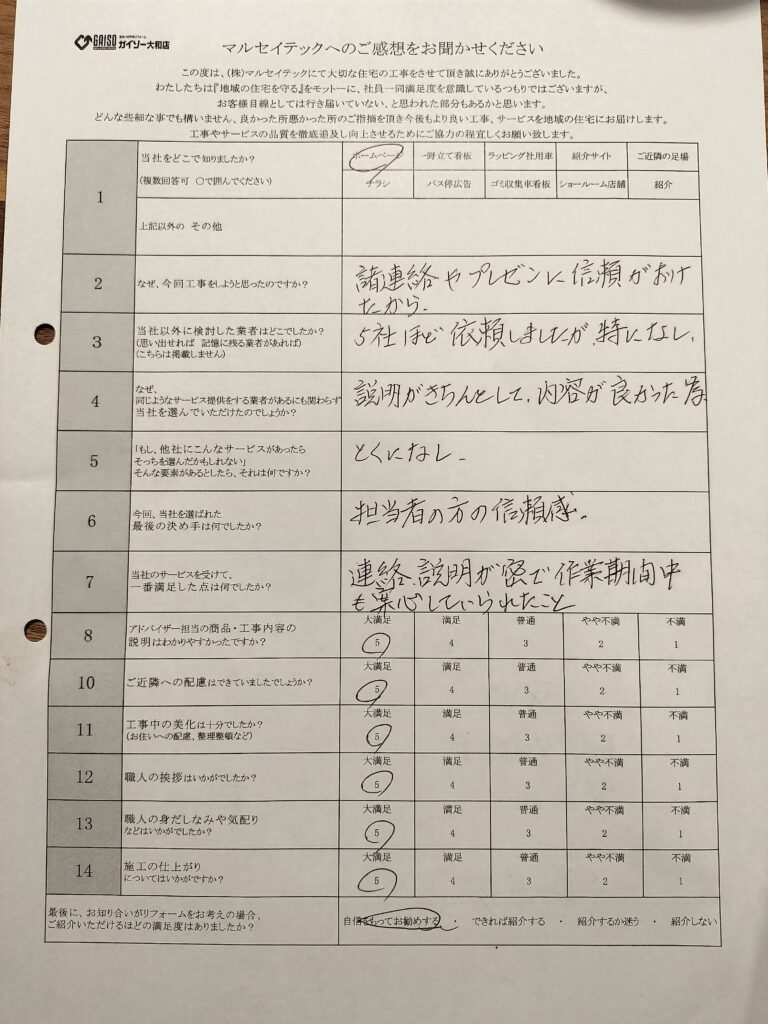 GAISO ガイソー大和店
マルセイテックへのご感想をお聞かせください
この度は、(株)マルセイテックにて大切な住宅の工事をさせて頂き誠にありがとうございました。
わたしたちは『地域の住宅を守る』をモットーに、社員一同満足度を意識しているつもりではございますが、
お客様目線としては行き届いていない、と思われた部分もあるかと思います。
どんな些細な事でも構いません、良かった所悪かった所のご指摘を頂き今後もより良い工事、サービスを地域の住宅にお届けします。
工事やサービスの品質を徹底追及し向上させるためにご協力の程宜しくお願い致します。
1
当社をどこで知りましたか?
(複数回答可 〇で囲んでください)
ホームページ 野立て看板 ラッピング社用車 紹介サイト ご近隣の足場
チラシ バス停広告 ゴミ収集車看板 ショールーム店舗 紹介
上記以外の その他
2
なぜ、今回工事をしようと思ったのですか?
諸連絡やプレゼンに信頼がおけ
たから.
3
当社以外に検討した業者はどこでしたか?
(思い出せれば 記憶に残る業者があれば)
(こちらは掲載しません)
5社ほど依頼しましたが、特になし.
4
なぜ、
同じようなサービス提供をする業者があるにも関わらず
当社を選んでいただけたのでしょうか?
説明がきちんとして、内容が良かった為
5
「もし、他社にこんなサービスがあったら
そっちを選んだかもしれない」
そんな要素があるとしたら、それは何ですか?
とくになし.
6
今回、当社を選ばれた
最後の決め手は何でしたか?
担当者の方の信頼感。
7
当社のサービスを受けて、
一番満足した点は何でしたか?
連絡、説明が密で作業期間中
も安心していられたこと
8
アドバイザー担当の商品・工事内容の
説明はわかりやすかったですか?
大満足 満足 普通 やや不満 不満
5 4 3 2 1
10
ご近隣への配慮はできていましたでしょうか?
大満足 満足 普通 やや不満 不満
5 4 3 2 1
11
工事中の美化は十分でしたか?
(お住いへの配慮、整理整頓など)
大満足 満足 普通 やや不満 不満
5 4 3 2 1
12
職人の挨拶はいかがでしたか?
大満足 満足 普通 やや不満 不満
5 4 3 2 1
13
職人の身だしなみや気配り
などはいかがでしたか?
大満足 満足 普通 やや不満 不満
5 4 3 2 1
14
施工の仕上がり
についてはいかがですか?
大満足 満足 普通 やや不満 不満
5 4 3 2 1
最後に、お知り合いがリフォームをお考えの場合、
ご紹介いただけるほどの満足度はありましたか?
自信をもってお勧めする ・ できれば紹介する ・ 紹介するか迷う ・ 紹介しない